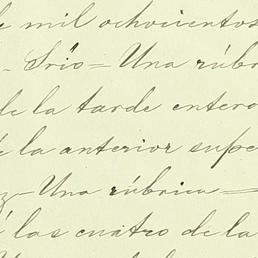 de mil ochocientos
- Srio = Una rúbri
de la tarde entero
de la anterior supe
z - Una rúbrica =
á las cuatro de la